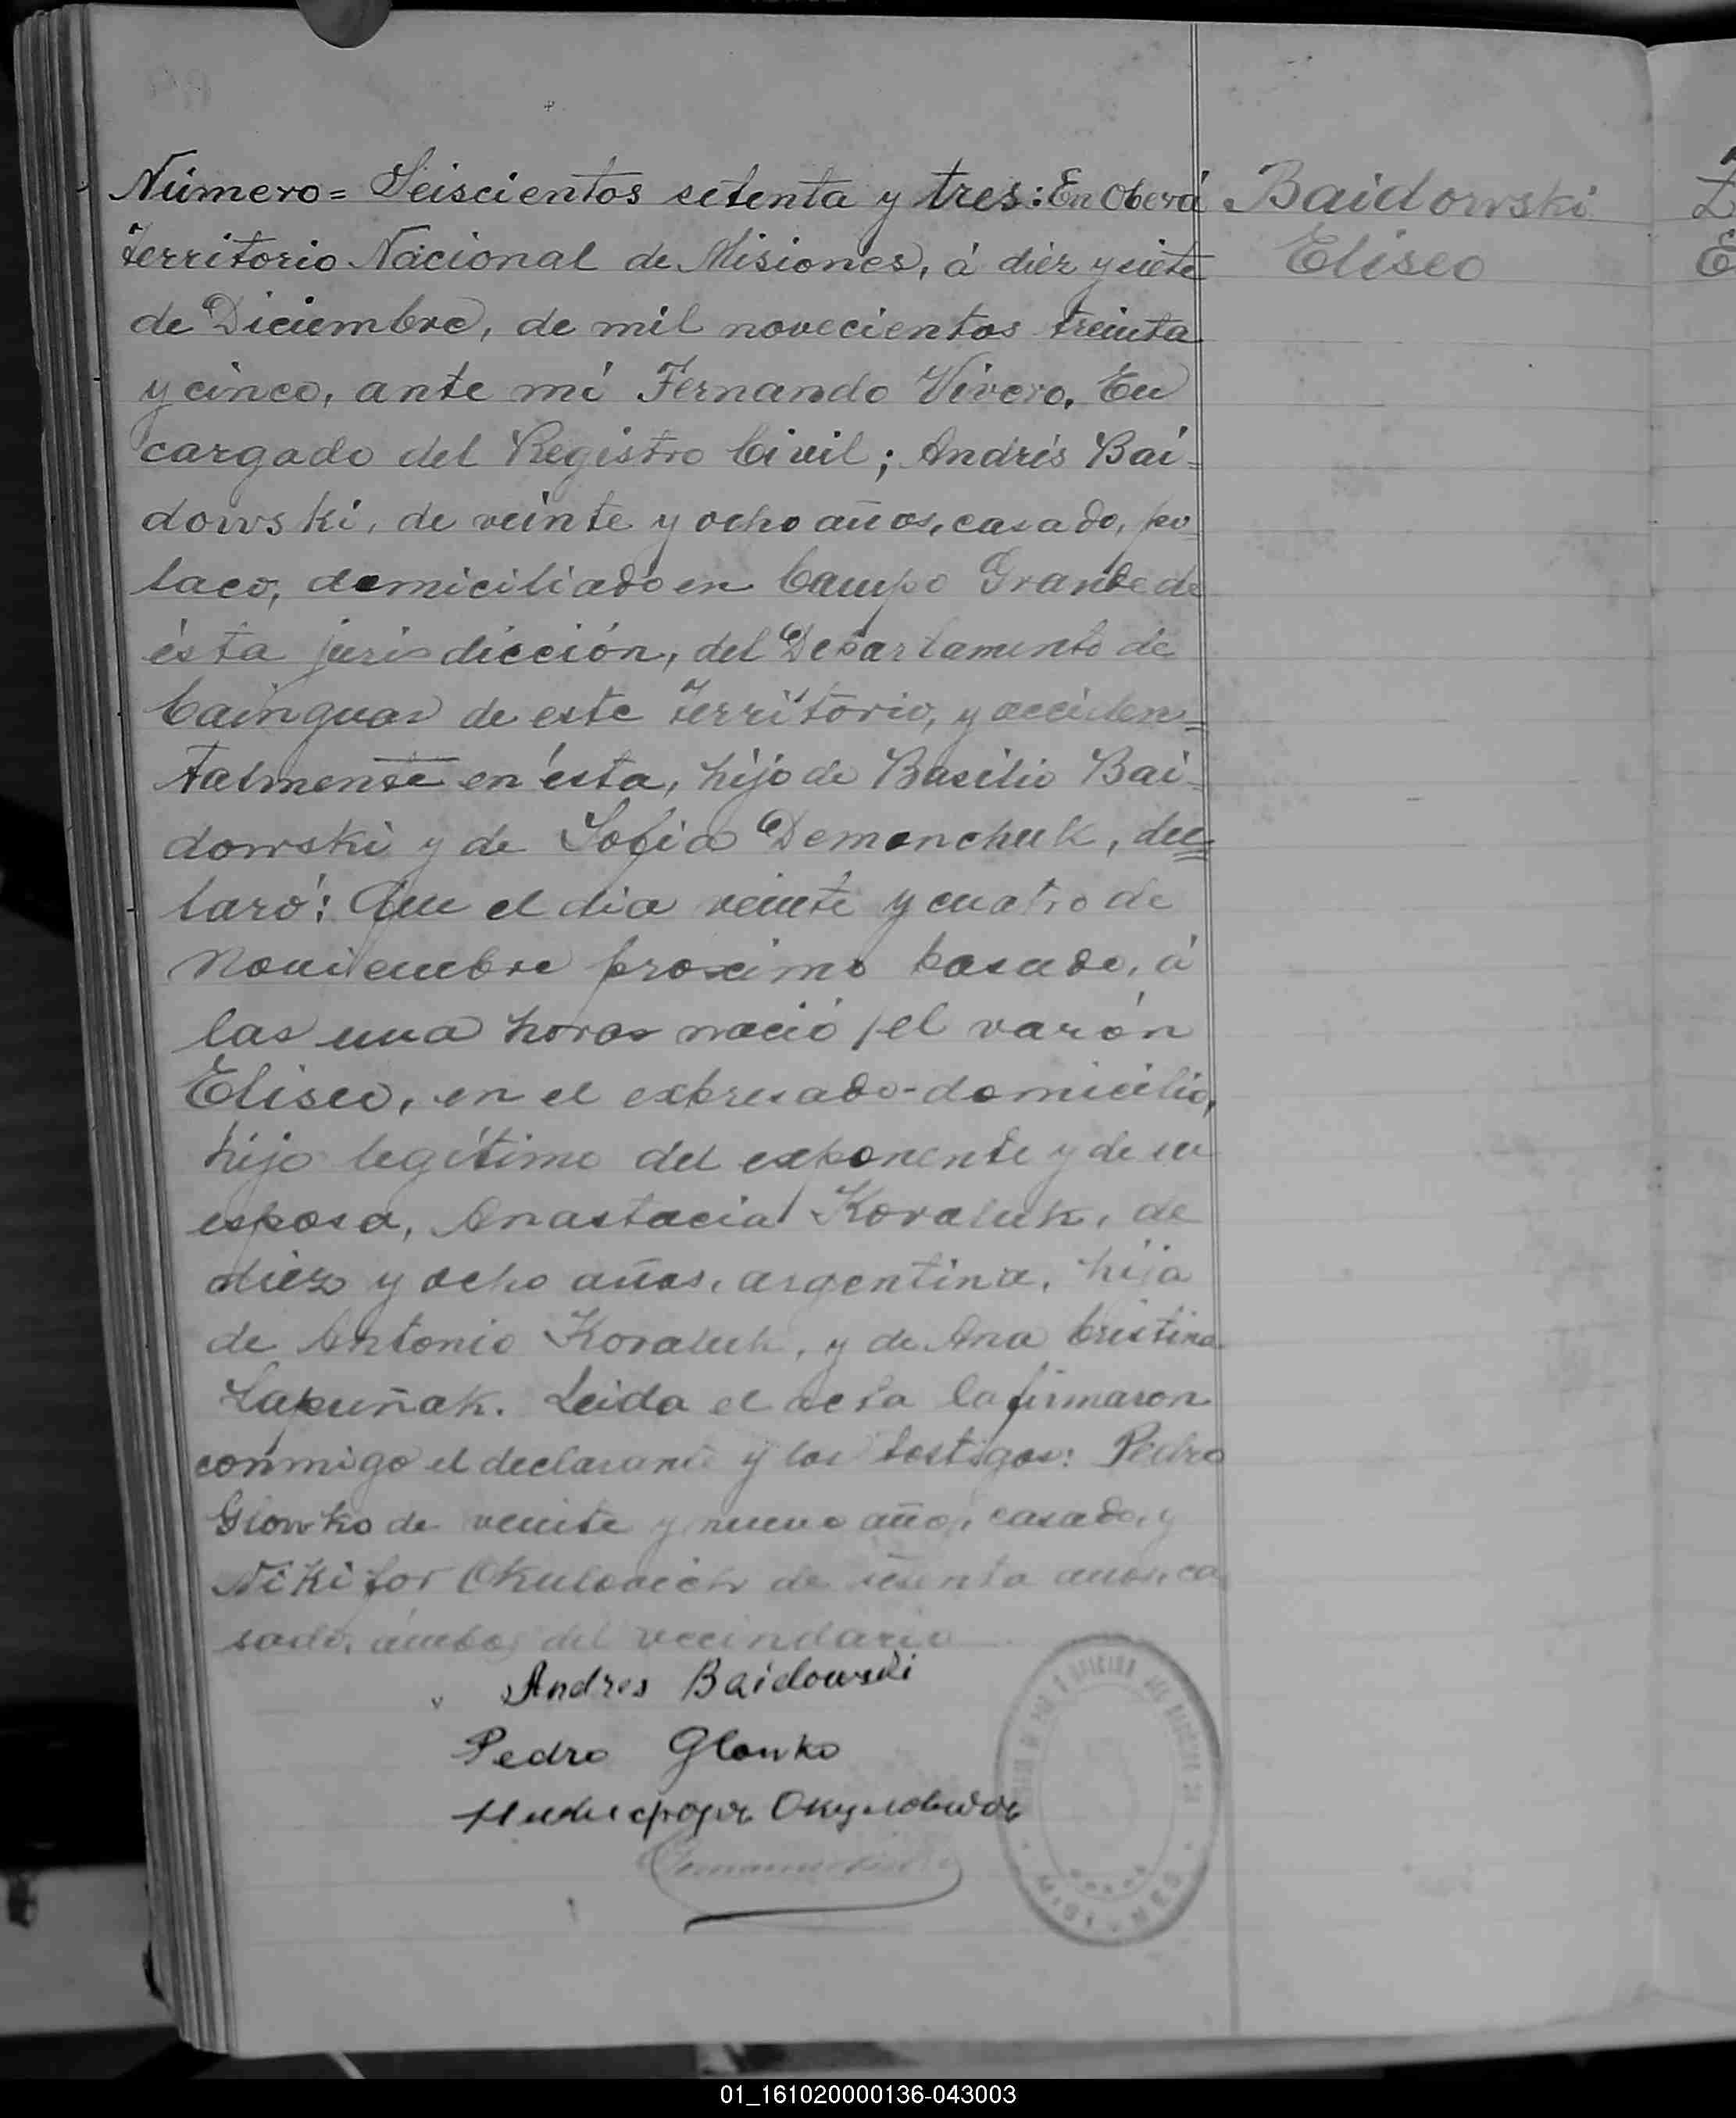 Número = Seiscientos setenta y tres: En Oberá
Territorio Nacional de Misiones, á diez y siete
de Diciembre, de mil novecientos treinta
y cinco, ante mí Fernando Vivero, En
cargado del Registro Civil; Andrés Bai=
dowski, de veinte y ocho años, casado, po
laco, domiciliado en Campo Grande de
ésta jurisdicción, del Departamento de
Cainguas de este Territorio, y acciden=
talmente en ésta, hijo de Basilio Bai=
dowski y de Sofia Demenchuk, dec=
laró: Que el dia veinte y cuatro de
Noviembre proximo pasado, á
las una horas nació el varón
Eliseo, en el expresado-domicilio,
hijo legítimo del exponente y de su
esposa, Anastacia Koraluk, de
diez y ocho años, argentina, hija
de Antonio Koraluk, y de Ana Cristina
Lapuñak. Leida el acta la firmaron
conmigo el declarante y los testigos: Pedro
Glowko de veinte y nueve años, casado, y
Nikifor Okulovich de sesenta años, ca
sado, ámbos del vecindario
Andres Baidowski
Pedro Glowko
Никифоръ Окуловичъ
MISIONES
Baidowski
Eliseo
01_161020000136-043003